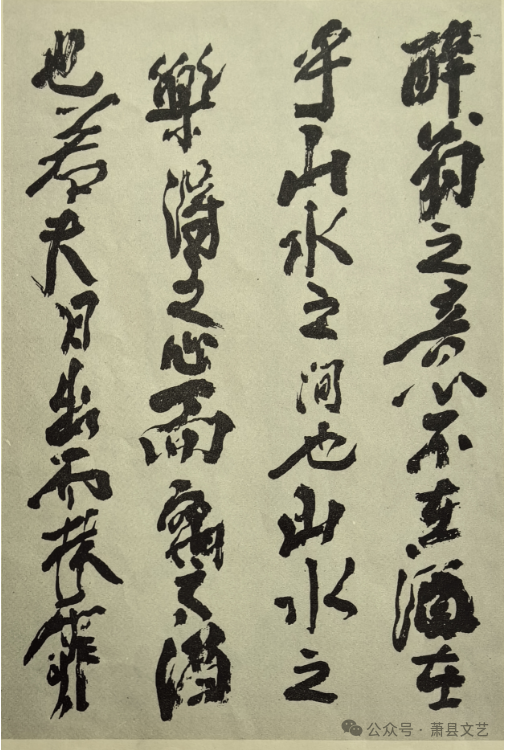 醉翁之意不在酒在
乎山水之間也山水之
樂得之心而寓之酒
也若夫日出而林霏
公众号 · 萧县文艺